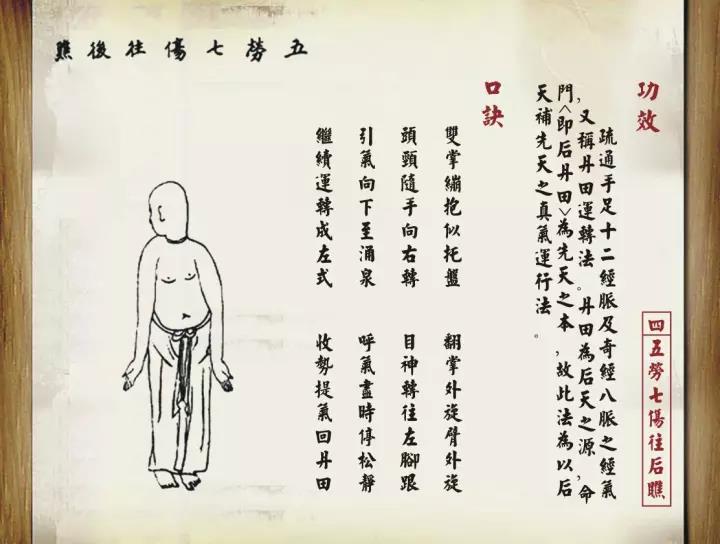 五勞七傷往後瞧
四五勞七傷往后瞧
功效
疏通手足十二經脈及奇經八脈之經氣
，又稱丹田運轉法。丹田為后天之源，命
門<即后丹田>為先天之本，故此法為以后
天補先天之真氣運行法。
口訣
雙掌繃抱似托盤 翻掌外旋臂外旋
頭頸隨手向右轉 目神轉往左腳跟
引氣向下至涌泉 呼氣盡時停松靜
繼續運轉成左式 收勢提氣回丹田